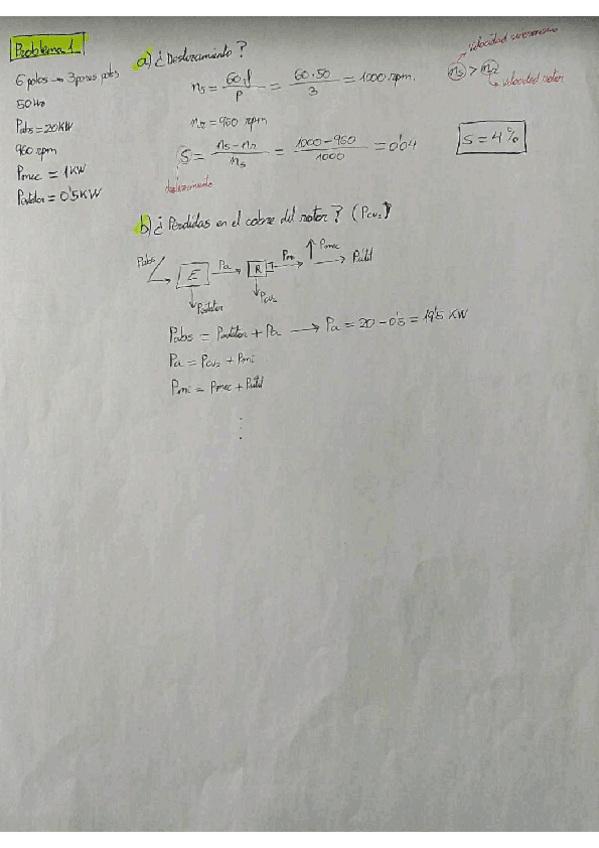 Problema 1
6 polos → 3 pares polos
50 Hz
Pabs = 20 KW
960 rpm
Pmec = 1 KW
Pestator = 0'5 KW
a) ¿Deslizamiento?
ns = 60·f / P = 60·50 / 3 = 1000 rpm.
velocidad sincronismo
ns > n2
velocidad rotor
n2 = 960 rpm
S = ns - n2 / ns = 1000 - 960 / 1000 = 0'04
S = 4%
deslizamiento
b) ¿Pérdidas en el cobre del rotor? (Pcu2)
Pabs E Pa R Pmi Pmec Pútil
Pestator Pcu2
Pabs = Pestator + Pa → Pa = 20 - 0'5 = 19'5 KW
Pa = Pcu2 + Pmi
Pmi = Pmec + Pútil